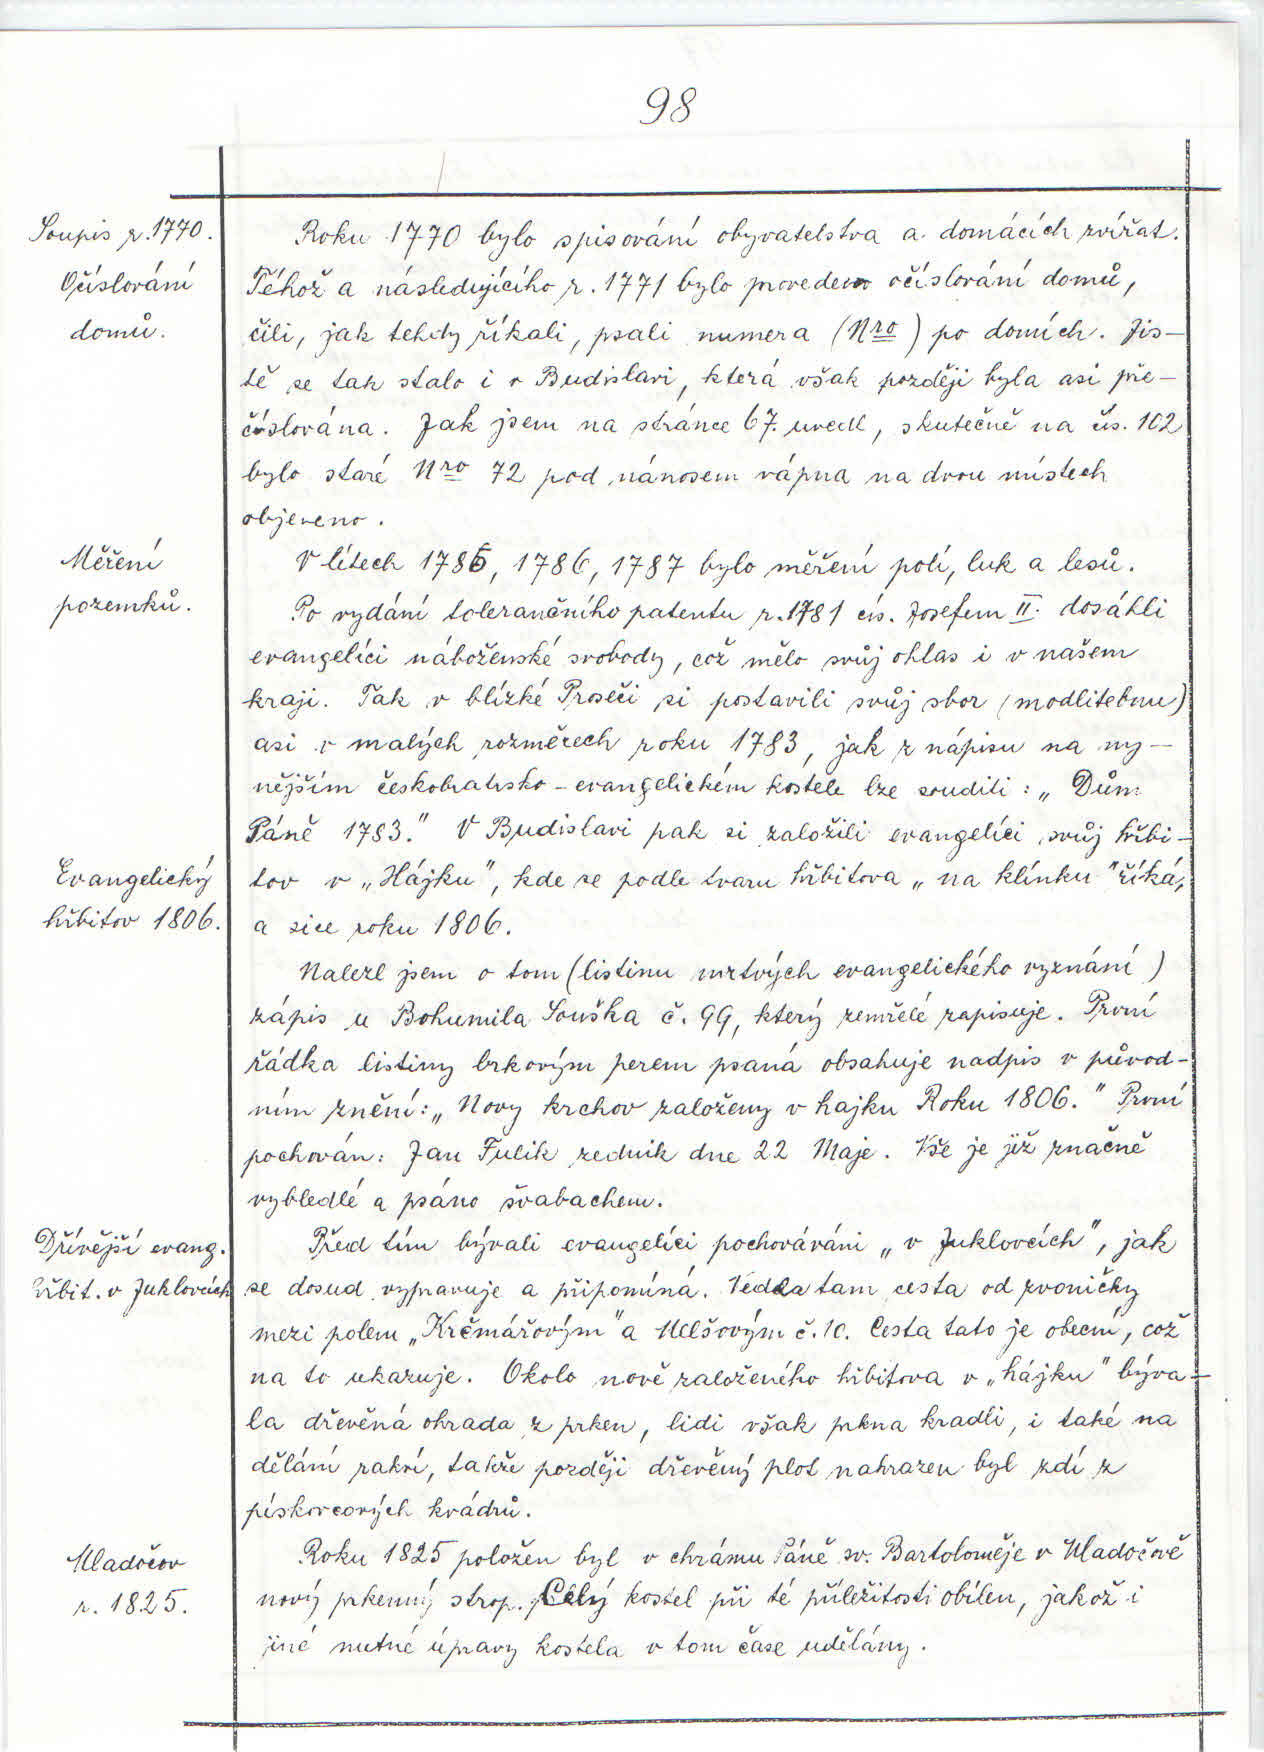 98
Soupis r. 1770.
Očíslování
domů.
Roku 1770 bylo spisování obyvatelstva a domácích zvířat.
Téhož a následujícího r. 1771 bylo provedeno očíslování domů,
čili, jak tehdy říkali, psali numera (Nro) po domích. Jis-
tě se tak stalo i v Budislavi, která však později byla asi pře-
číslována. Jak jsem na stránce 67. uvedl, skutečně na čís. 102
bylo staré Nro 72 pod nánosem vápna na dvou místech
objeveno.
Měření
pozemků.
V létech 1785, 1786, 1787 bylo měření polí, luk a lesů.
Po vydání tolerančního patentu r. 1781 cís. Josefem II. dosáhli
evangelíci náboženské svobody, což mělo svůj ohlas i v našem
kraji. Tak v blízké Proseči si postavili svůj sbor (modlitebnu)
asi v malých rozměrech roku 1783, jak z nápisu na ny-
nějším českobratrsko-evangelickém kostele lze souditi: „Dům
Páně 1783." V Budislavi pak si založili evangelíci svůj hřbi-
Evangelický
hřbitov 1806.
tov v „Hájku", kde se podle tvaru hřbitova „na klínku" říká,
a sice roku 1806.
Nalezl jsem o tom (listinu mrtvých evangelického vyznání)
zápis u Bohumila Souška č. 99, který zemřelé zapisuje. První
řádka listiny brkovým perem psaná obsahuje nadpis v původ-
ním znění: „Novy krchov založeny v hajku Roku 1806." První
pochován: Jan Fulik zednik dne 22 Maje. Vše je již značně
vybledlé a psáno švabachem.
Dřívější evang.
hřbit. v Juklovcích
Před tím bývali evangelíci pochováváni „v Juklovcích", jak
se dosud vypravuje a připomíná. Vedla tam cesta od zvoničky
mezi polem „Krčmářovým" a Ullšovým č. 10. Cesta tato je obecní, což
na to ukazuje. Okolo nově založeného hřbitova v „hájku" býva-
la dřevěná ohrada z prken, lidi však prkna kradli, i také na
dělání rakví, takže později dřevěný plot nahrazen byl zdí z
pískovcových kvádrů.
Mladočov
r. 1825.
Roku 1825 položen byl v chrámu Páně sv. Bartoloměje v Mladočově
nový prkenný strop. Celý kostel při té příležitosti obílen, jakož i
jiné nutné úpravy kostela v tom čase udělány.